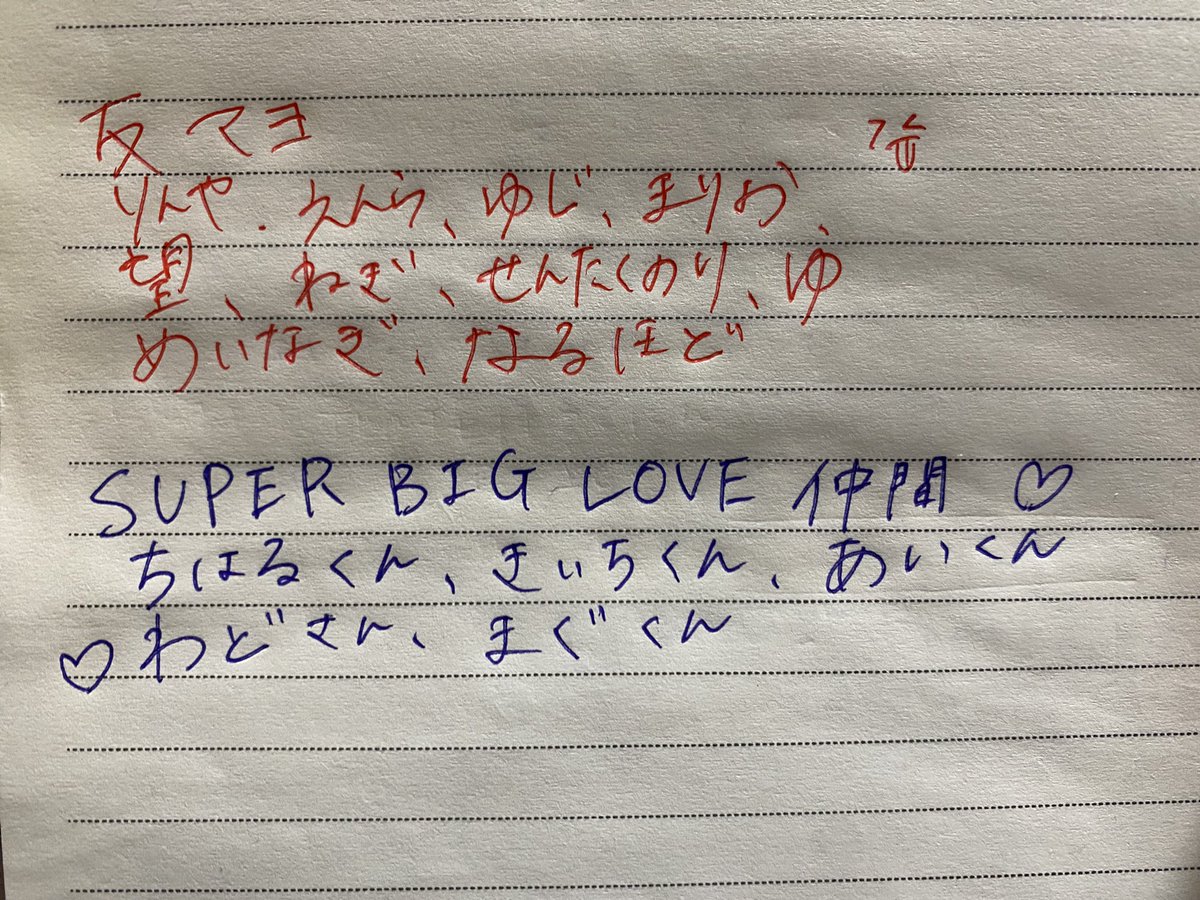 反マヨ
りんや、えんら、ゆじ、まりか、
望、ねぎ、せんたくのり、ゆ
めいなぎ、なるほど
SUPER BIG LOVE 仲間 ♡
ちはるくん、きぃちくん、あいくん
♡わどさん、まぐくん